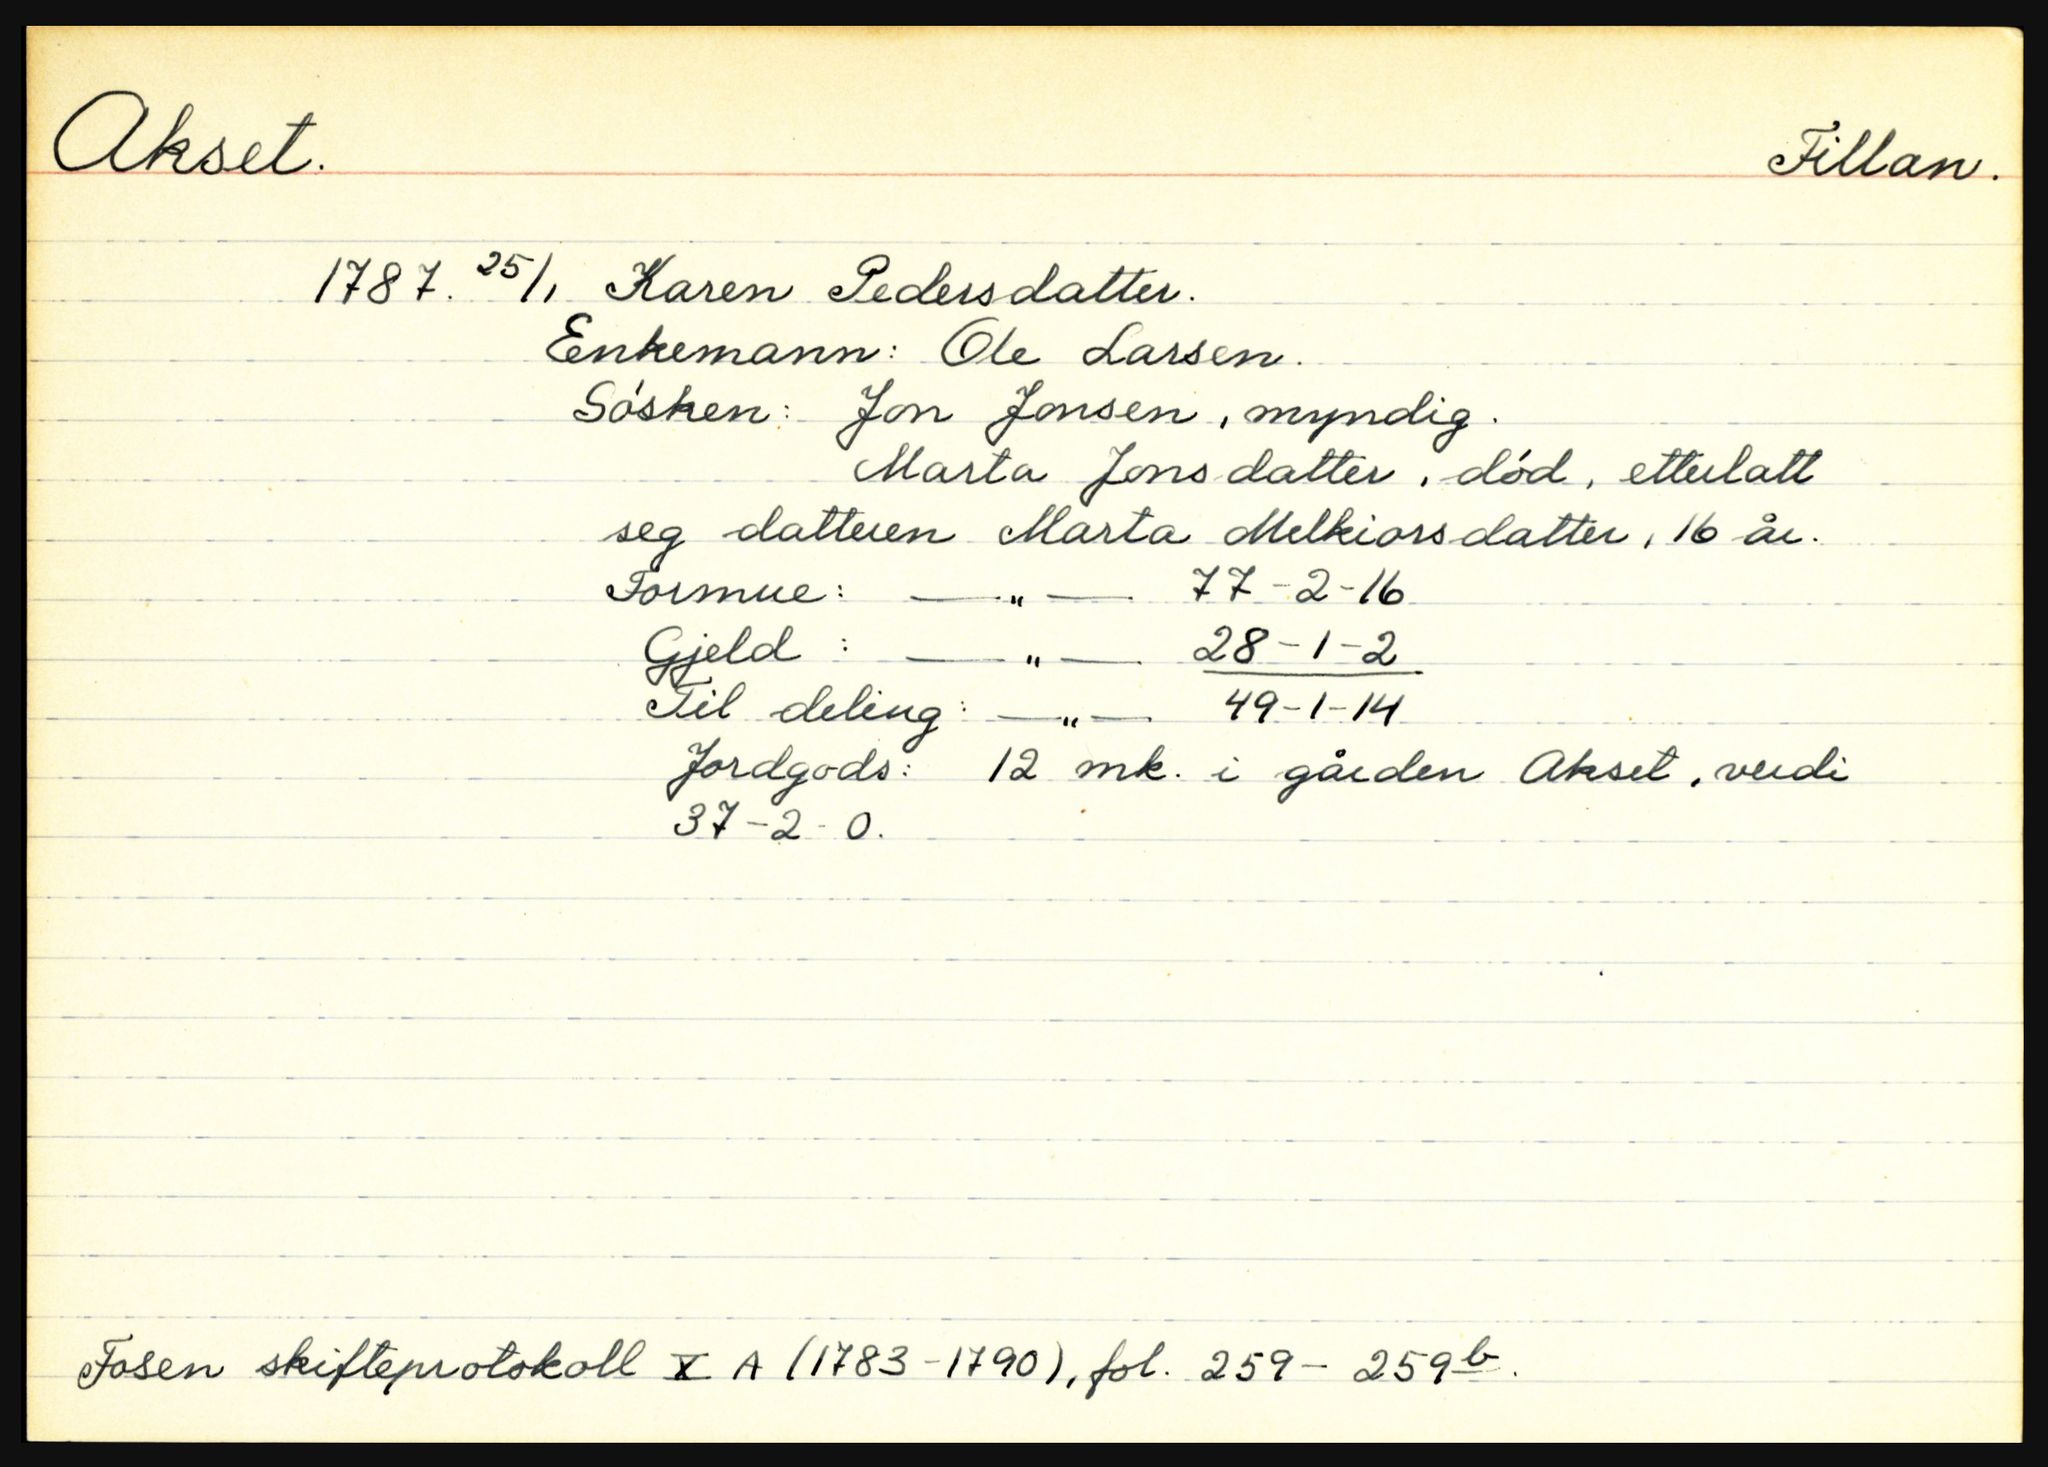 Akset.
Fillan.
1787. 25/1 Karen Pedersdatter.
Enkemann: Ole Larsen.
Sósken: Jon Jonsen, myndig.
Marta Jonsdatter, död, etterlatt
seg datteren Marta Melkiorsdatter, 16 år.
Formue: — " — 77-2-16
Gjeld : — " — 28-1-2
Til deling: — " — 49-1-14
Jordgods: 12 mk. i gården Akset, verdi
37-2-0.
Fosen skifteprotokoll X A (1783-1790), fol. 259-259b.